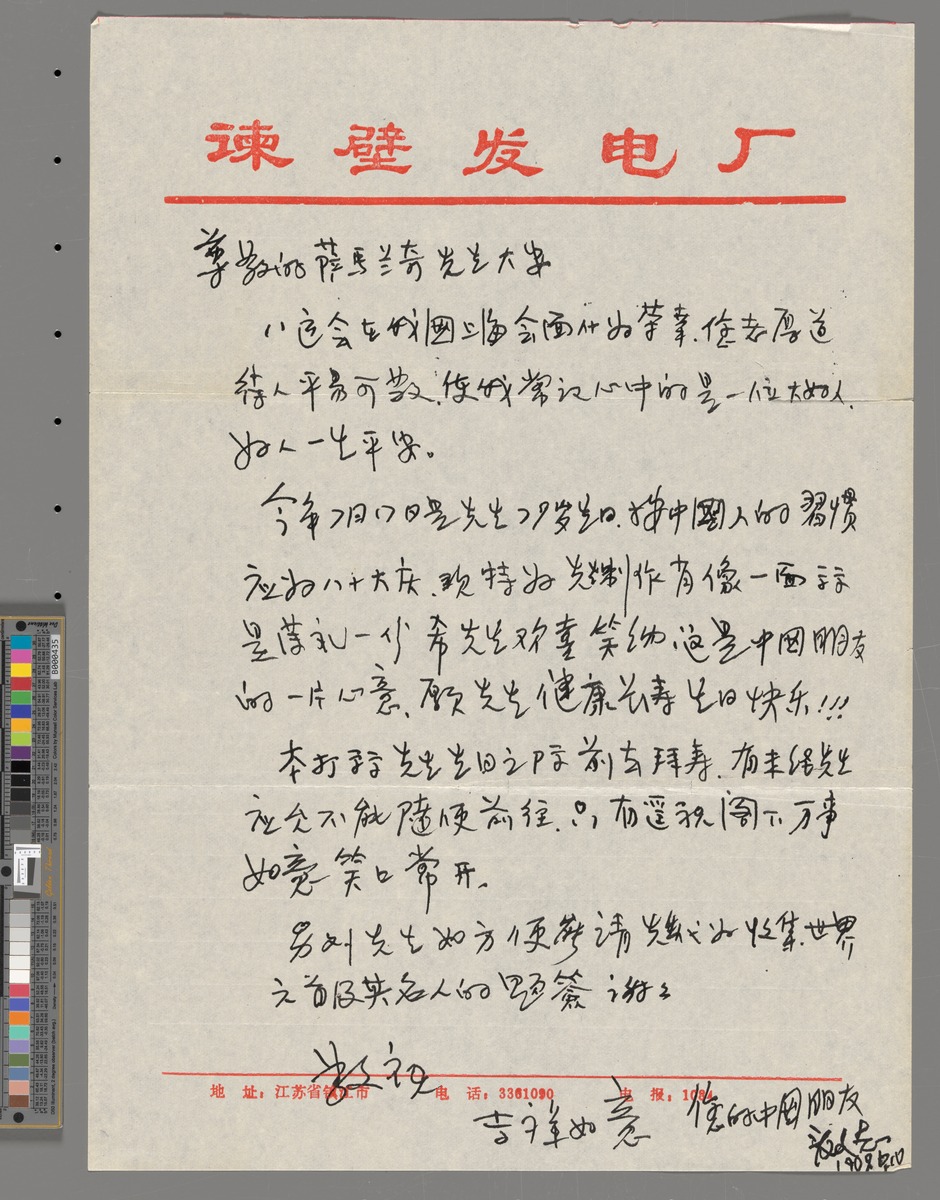 谏壁发电厂
尊敬的萨马兰奇先生大安
八运会在我国上海会面什为荣幸、您老厚道
待人平易可敬、使我常记心中的是一位大好人、
好人一生平安。
今年7月17日是先生79岁生日、按中國人的習慣
应为八十大庆、现特为先生制作肖像一面
是薄礼一份希先生欢喜笑纳这是中国朋友
的一片心意、愿先生健康长寿生日快乐!!!
本打 先生生日之际前去拜寿、有未经先生
应允不能随便前往、只有遥祝阁下万事
如意笑口常开、
另 先生如方便 请先生代为收集世界
元首及英名人的题簽 谢谢
敬祝
吉祥如意
您的中国朋友
地 址:江苏省镇江市 电 话:3361090 电 报:1084
B000435